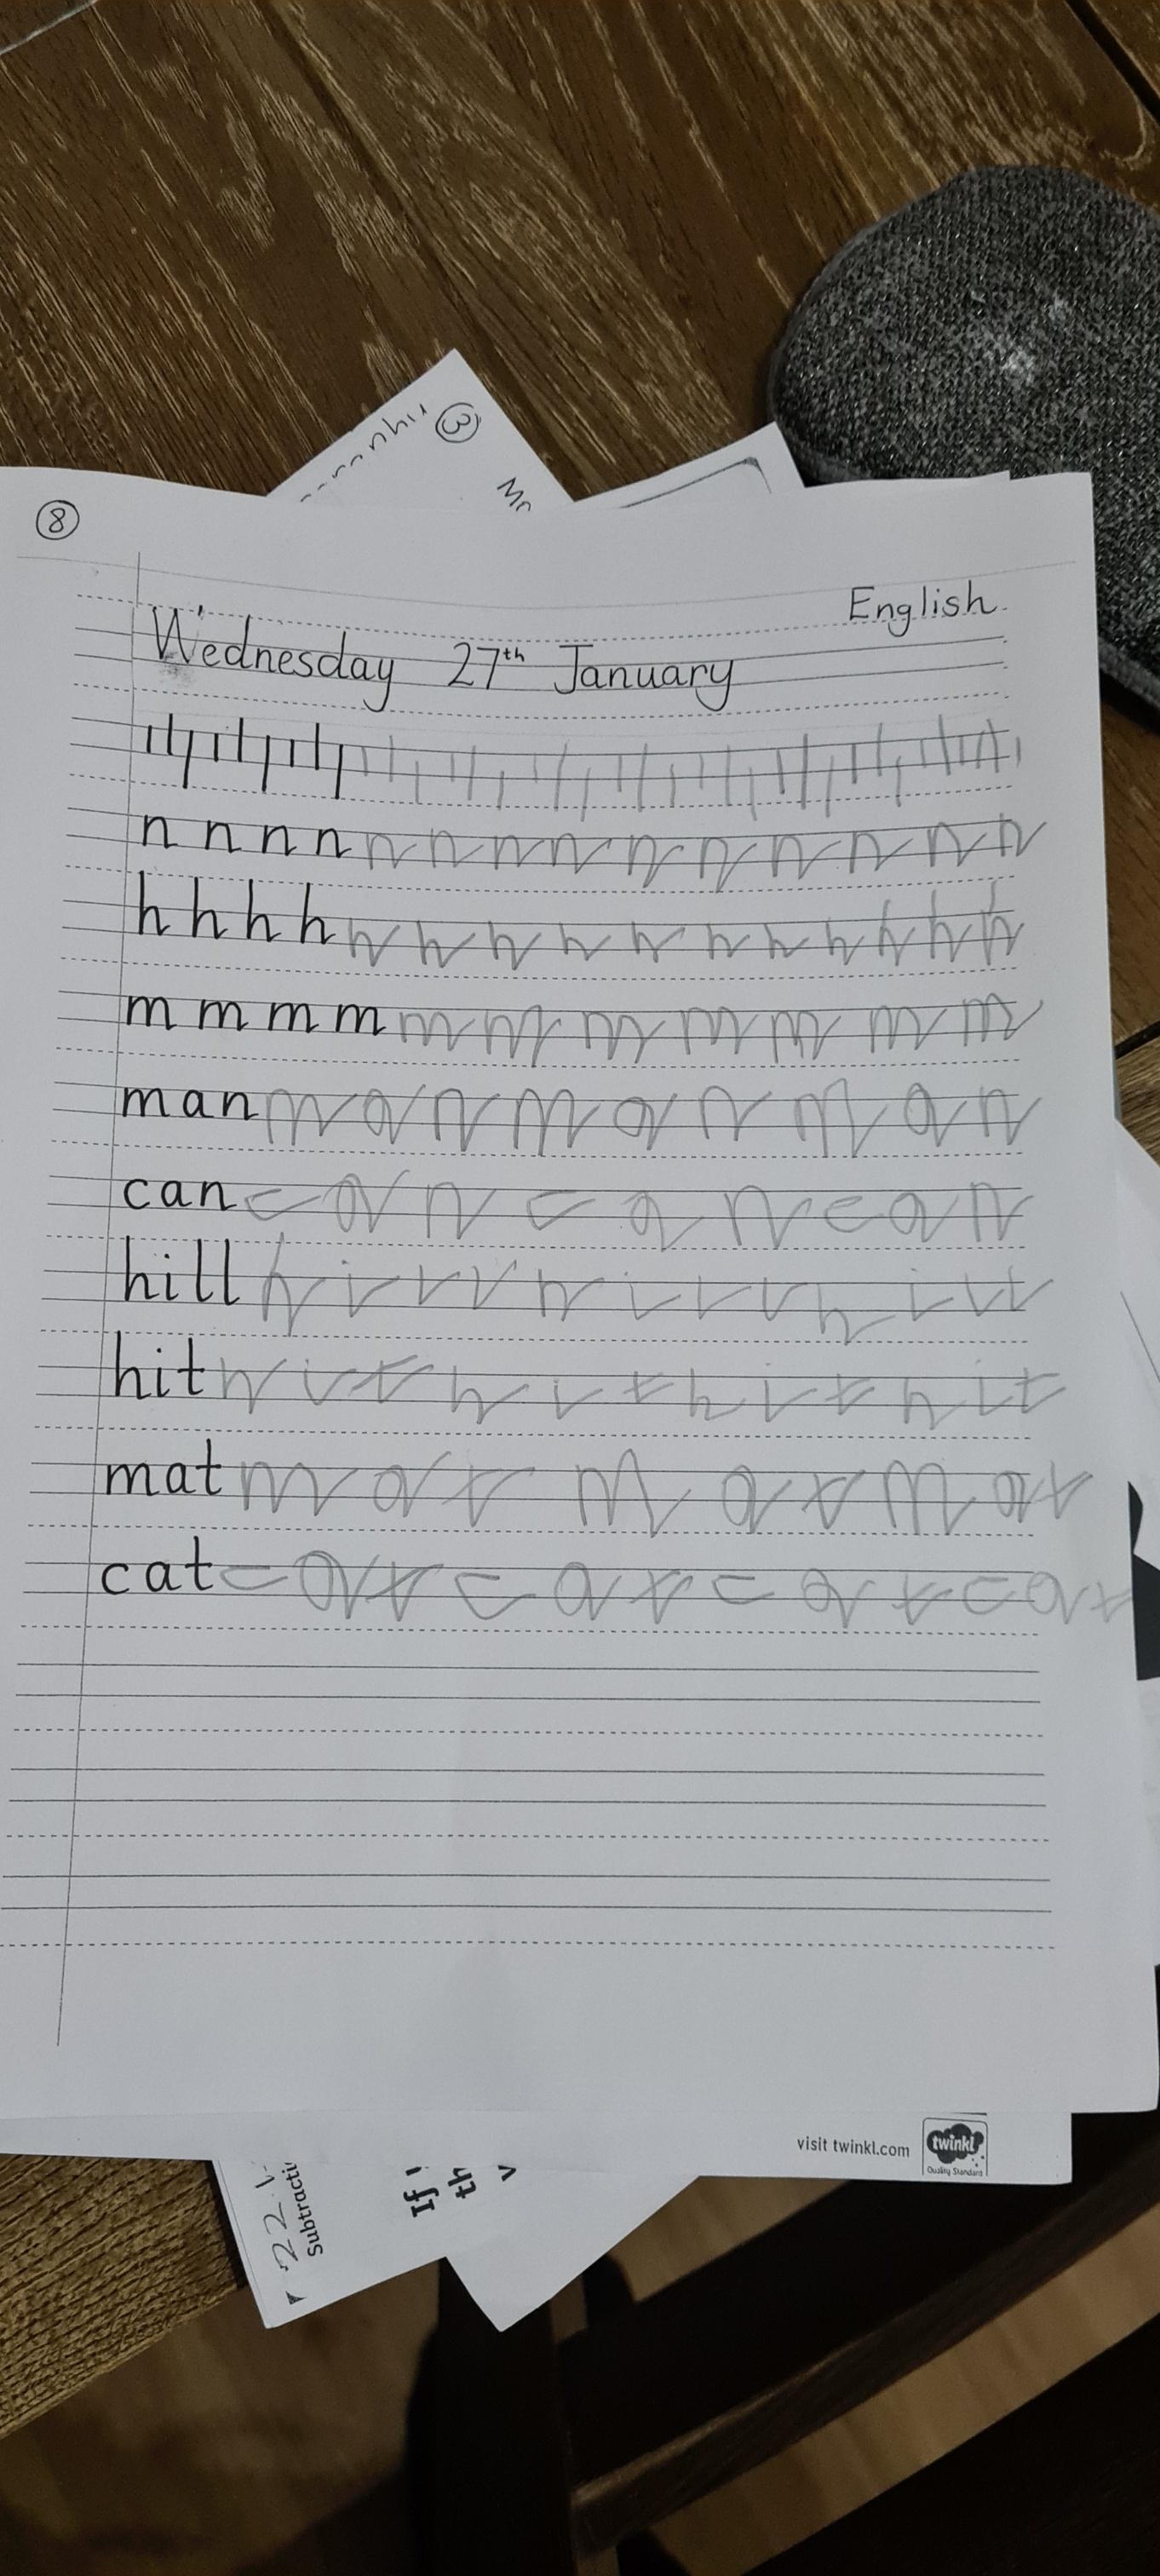 3
8
English
Wednesday 27th January
n n n n n n n n n n n n n n
h h h h h h h h h h h h h h h
m m m m m m m m m m m
man m a n m a n m a n
can c a n c a n c a n
hill h i l l h i l l h i l l
hit h i t h i t h i t h i t
mat m a t m a t m a t
cat c a t c a t c a t c a t
visit twinkl.com
twinkl
Quality Standard
22.1
If
th